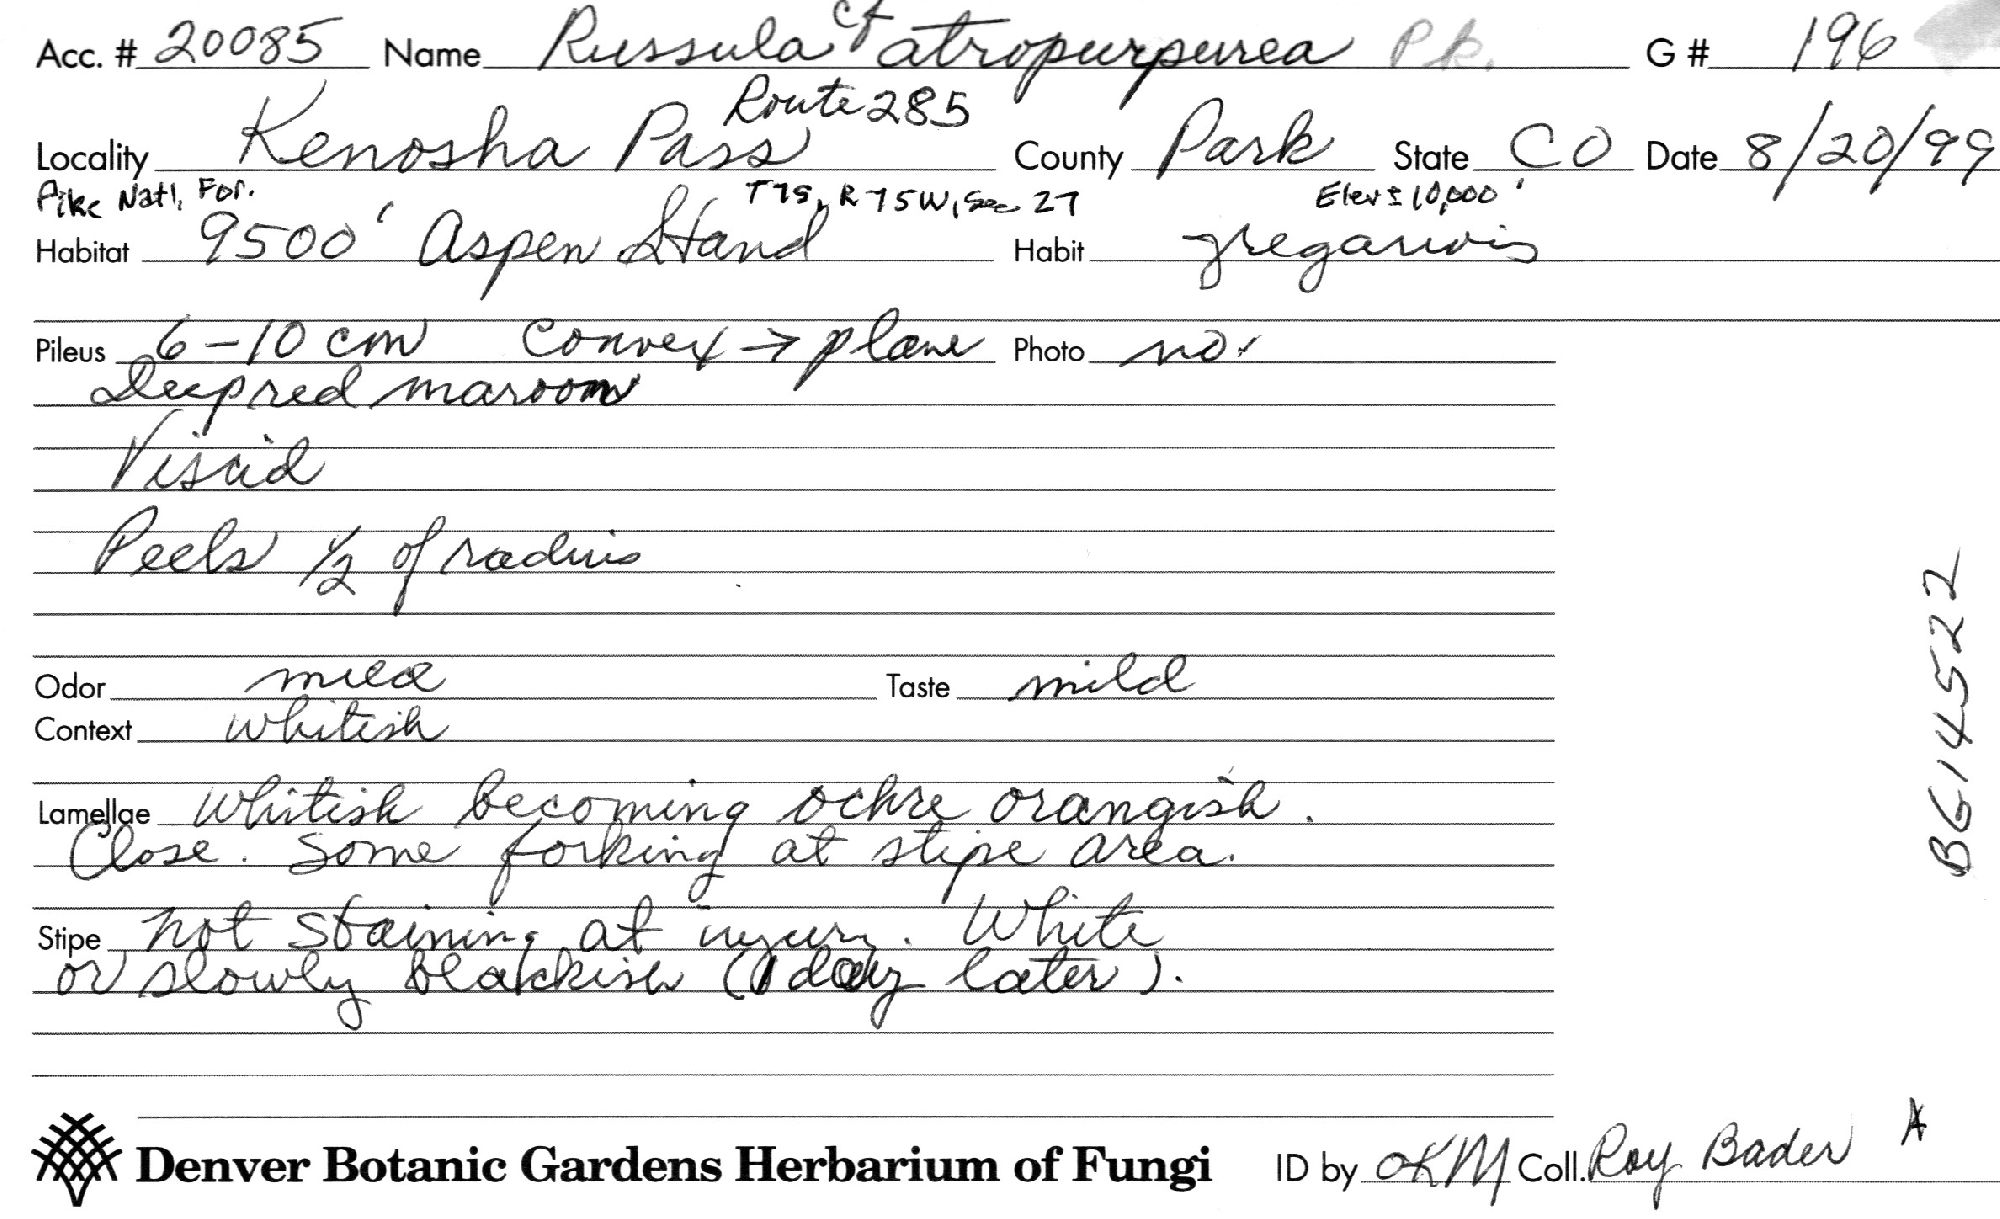 Acc. # 20085 Name Russula cf atropurpurea Pk. G # 196
Route 285
Locality Kenosha Pass County Park State CO Date 8/20/99
Pike Natl. For. T7S, R75W, Sec 27 Elev ± 10,000'
Habitat 9500' Aspen Stand Habit gregarious
Pileus 6-10 cm Convex → plane Photo no.
Deep red maroon
Viscid
Peels 1/2 of radius
Odor mild Taste mild
Context whitish
Lamellae whitish becoming ochre orangish.
Close. Some forking at stipe area.
Stipe not staining at injury. White
or slowly blackish (1 day later).
B614522
Denver Botanic Gardens Herbarium of Fungi ID by OKM Coll. Roy Bader A